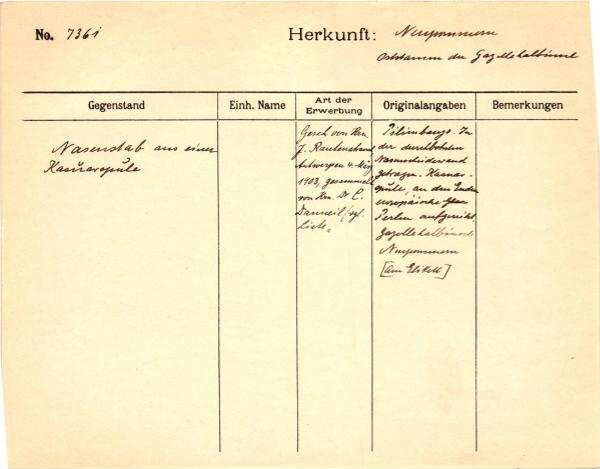 No. 7361
Herkunft: Neupommern
Oststamm der Gazellehalbinsel
Gegenstand
Einh. Name
Art der
Erwerbung
Originalangaben
Bemerkungen
Nasenstab aus einer
Kasuarspule
Gesch von Hrn.
J. Rautenstrauch
Antwerpen 4. März
1903, gesammelt
von Hrn. Dr C.
Danneil (vgl.
Liste.
In
der durchbohrten
Nasenscheidewand
getragen. Kasuar-
spule, an den Enden
europäische Glas
Perlen aufgereiht
Gazellehalbinsel
Neupommern
[Am Etikett]